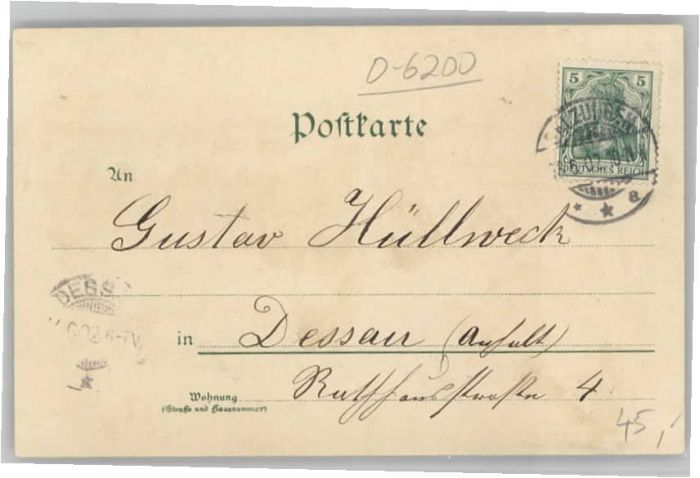 D-6200
5 5
Postkarte
SALZUNGEN
DEUTSCHES REICH
a
An
Gustav Hüllweck
DESS
6.02.6-7V.
in Dessau (Anhalt)
Wohnung
(Straße und Hausnummer)
4
45,